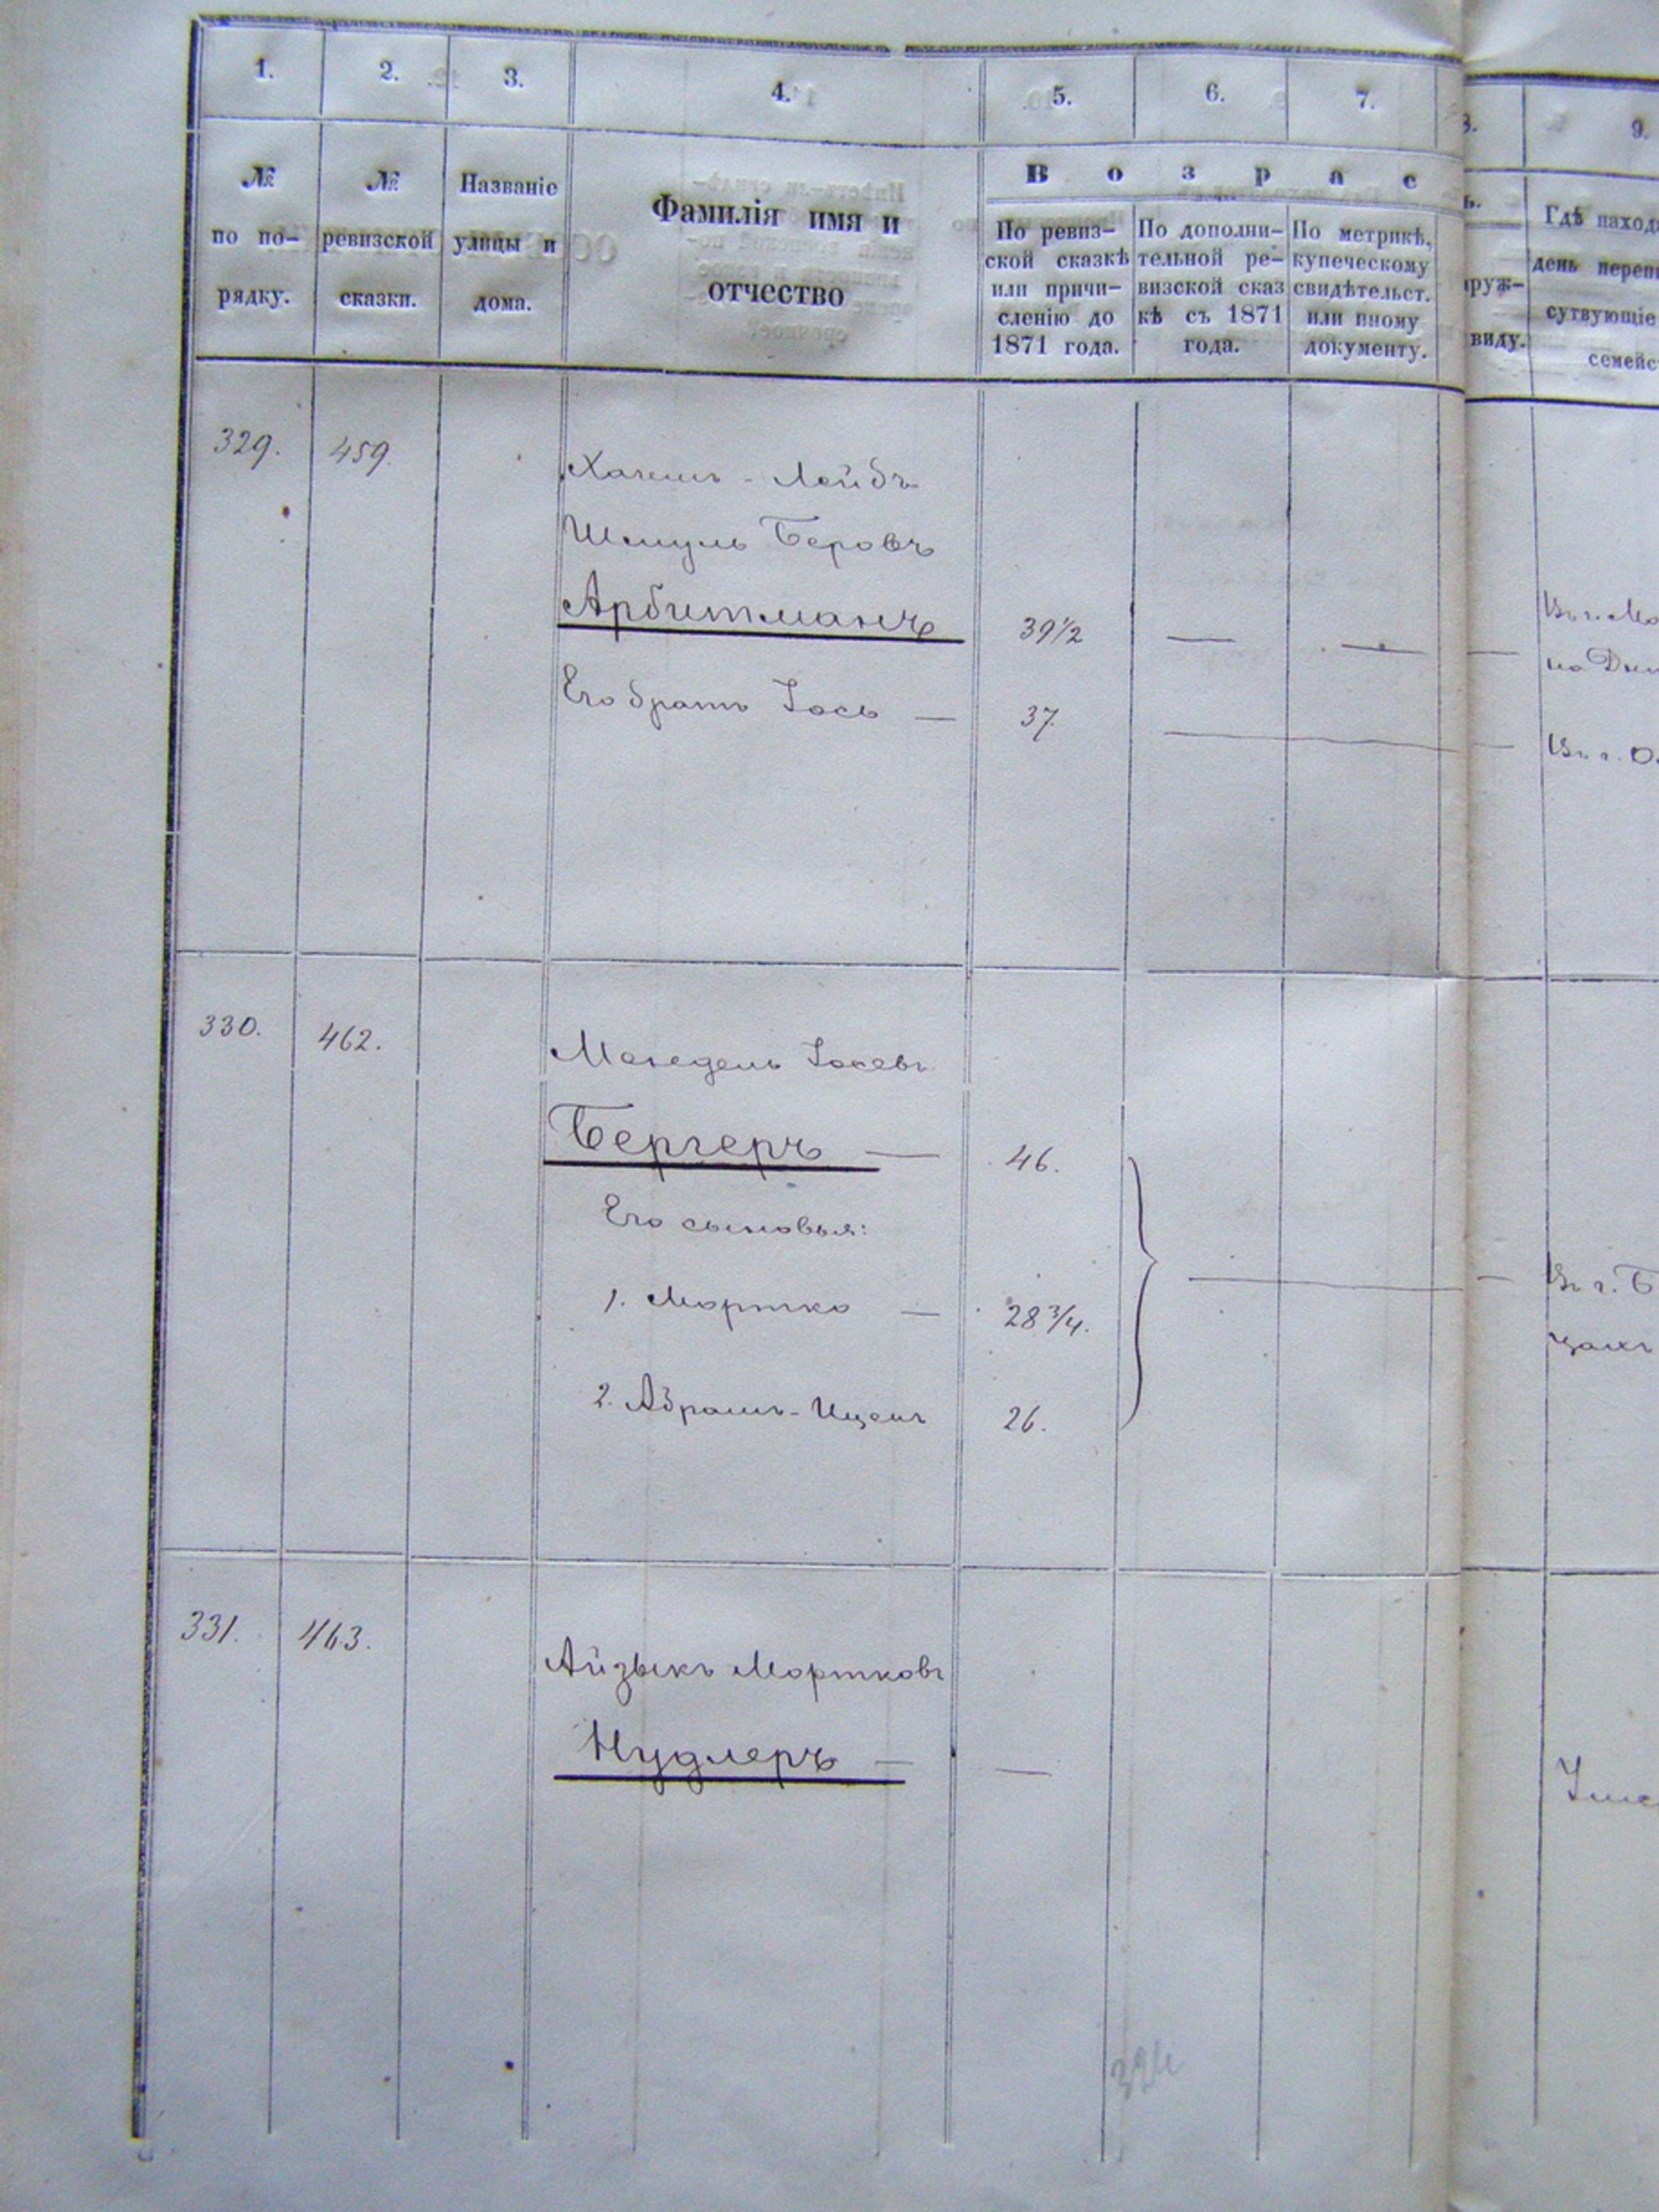 1. 2. 3. 4. 5. 6. 7. 8. 9.
№ по по-рядку.
№ ревизской сказки.
Названіе улицы и дома.
Фамилія имя и отчество
В о з р а с
По ревиз-
ской сказкѣ
или причи-
сленію до
1871 года.
По дополни-
тельной ре-
визской сказ
кѣ съ 1871
года.
По метрикѣ,
купеческому
свидѣтельст.
или иному
документу.
ь.
аруж-
виду.
Гдѣ наход
день переп
сутвующіе
семейс
329. 459. Хаимъ - Лейбъ
Шмуль Беровъ
Арбитманъ 39 1/2 — — —
Въ г. Мо
на Дн
Его братъ Іось — 37. —
Въ г. О
330. 462. Менедель Іосевъ
Бергеръ — 46.
Его сыновья:
1. Мортко — 28 3/4. —
Въ г. Б
цахъ
2. Абрамъ - Ицекъ 26.
331. 463. Айзыкъ Мортковъ
Нудлеръ — —
324